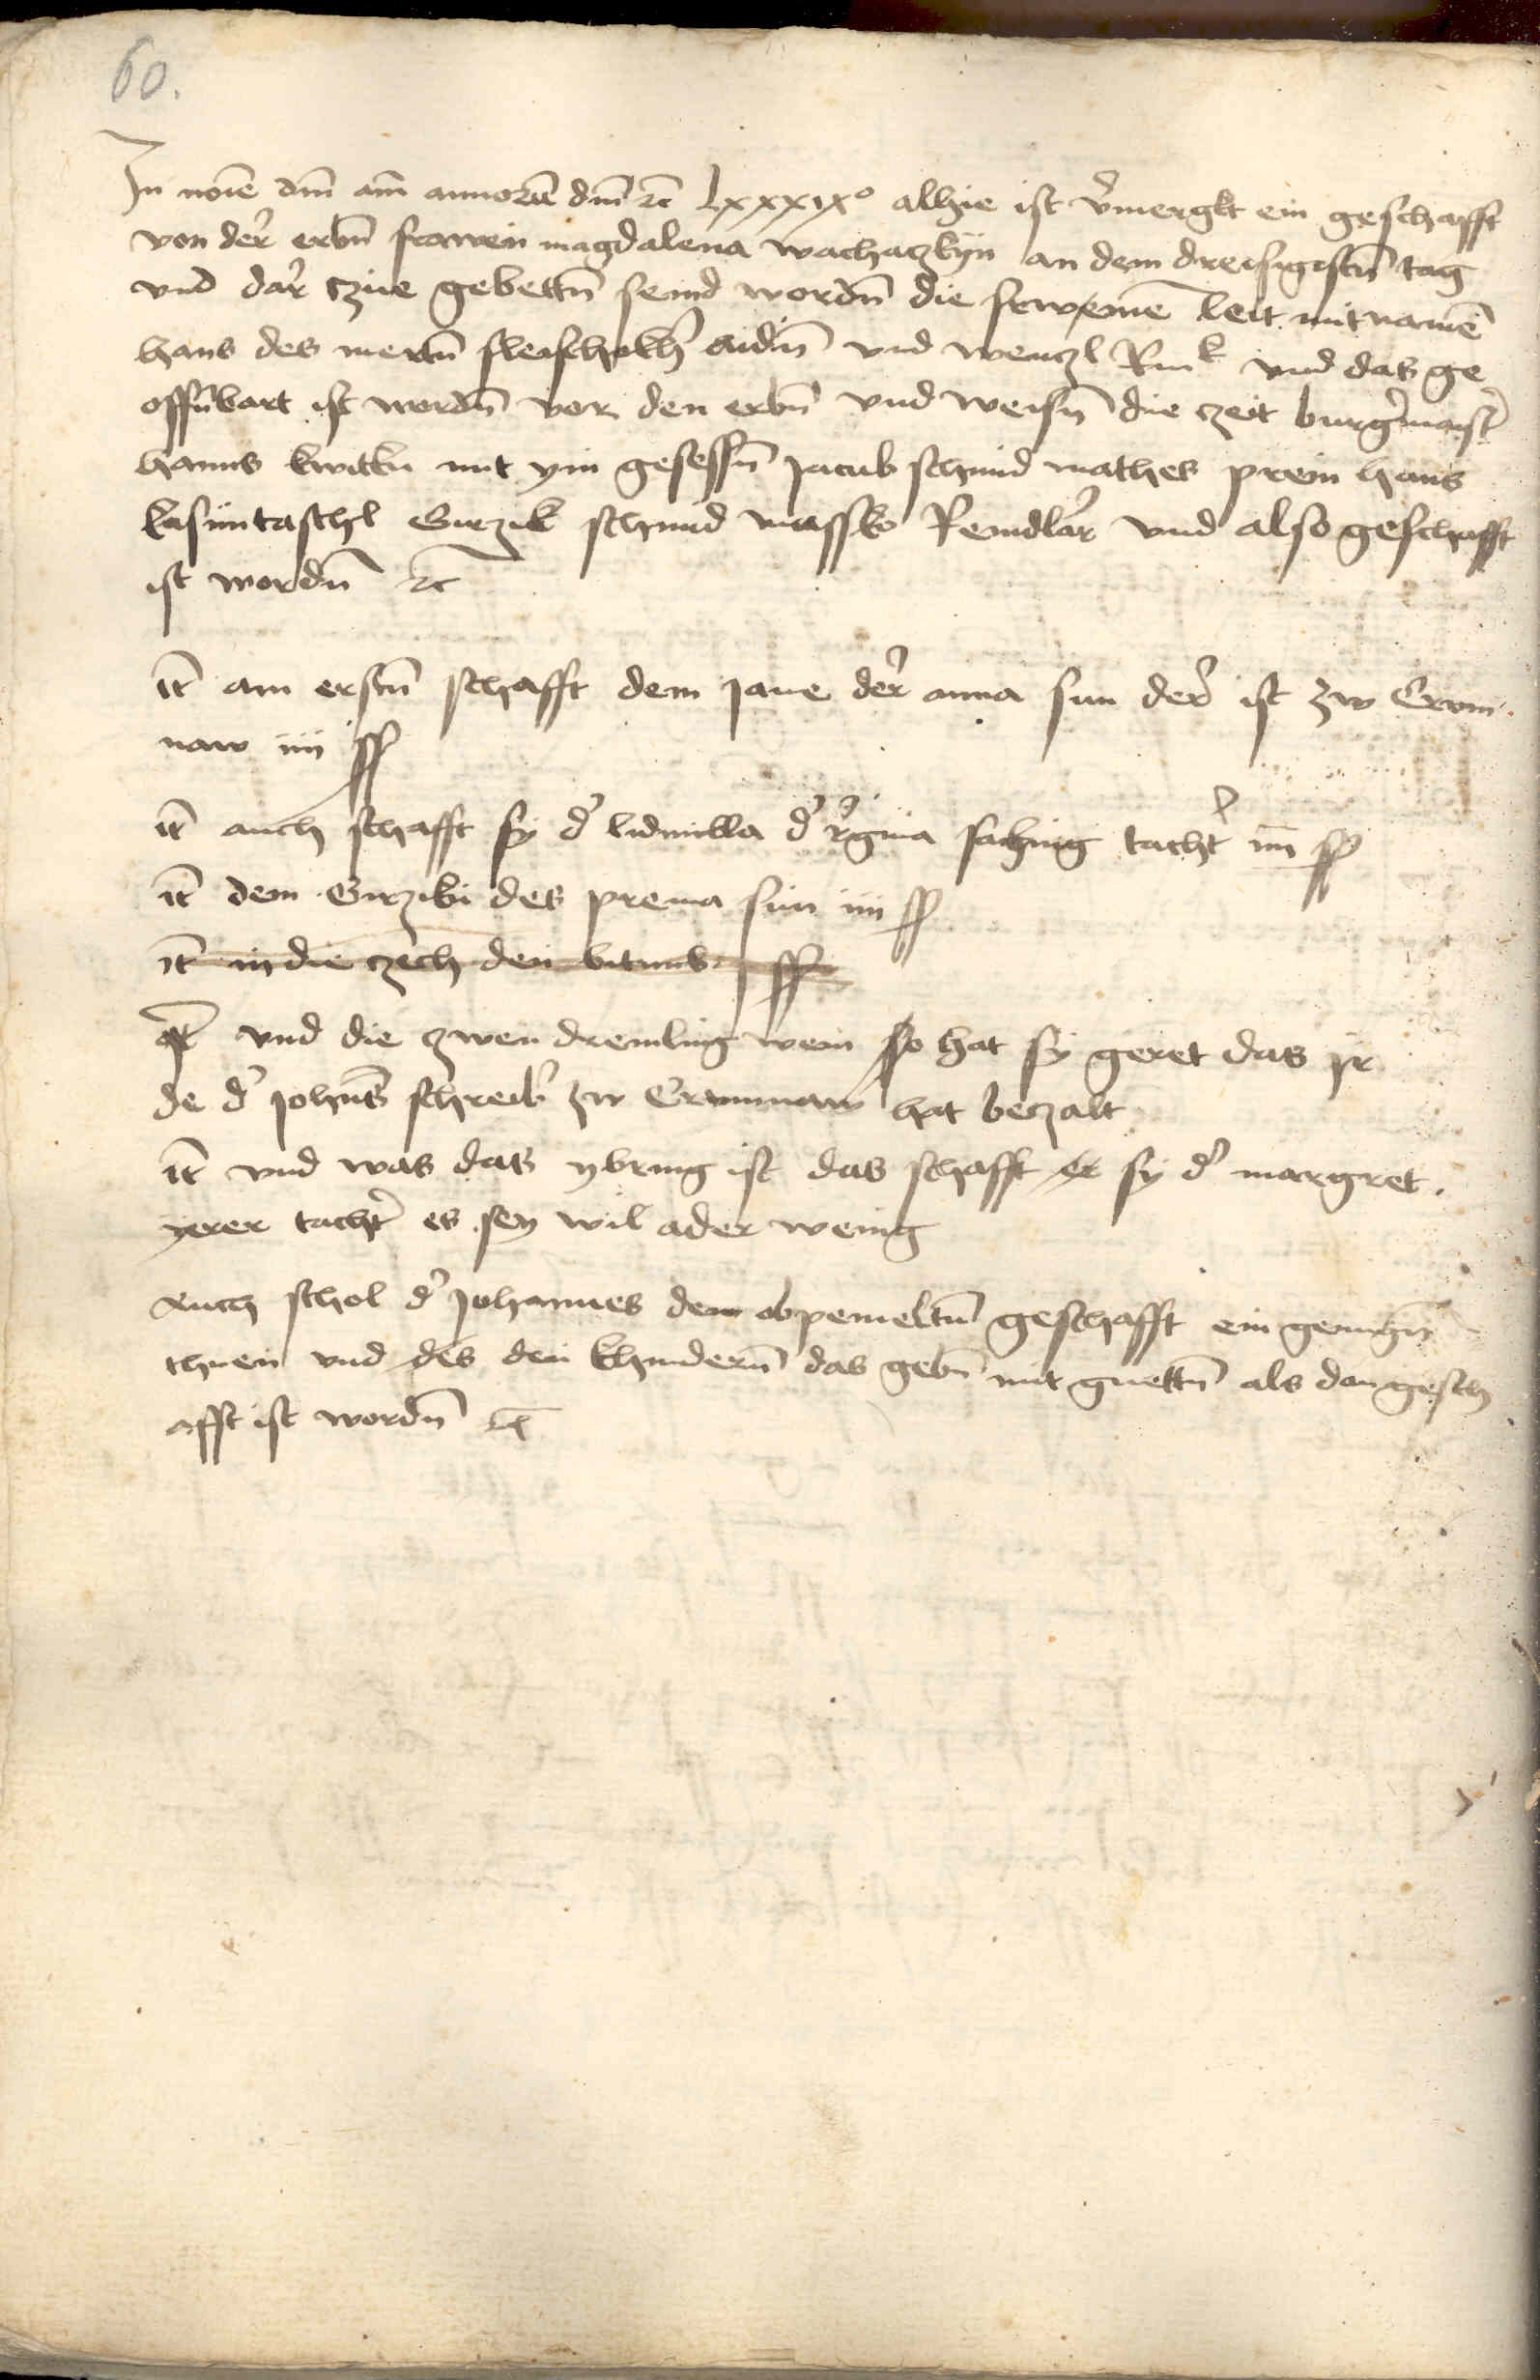 60.
In noīe dm̄ am̄ annorū dm̄ ꝛc̄ Lxxxixº alhie ist v̓merglt ein geschafft
von der̓ erbn̄ frawen magdalena wachaczkyn an dem dreisigistn̄ tag
vnd dar̓ czue gebettn̄ seind wordn̄ die frwmenē leit mit namē
hans des mertn̄ fleischakh̓ aidn̄ vnd wenczl Rink vnd das ge
offn̄bart ist wordn̄ vor den erbn̄ vnd weisn̄ die zeit burg̓maist̓
hanns kwitku mit yin gesessn̄ Jacub schmid mathes prein hans
kasuntaschl Girzik schmid massko Remdlar̓ vnd also geschafft
ist wordn̄ ꝛc
it̄ am erstn̄ schafft dem Jane der̓ anna sun der̓ ist zw Crom
naw iiii ss
it̄ auch schafft sy d̓ lidmilla d̓ r̓gina tacht̓ iiii ss
it̄ dem Girziki des prema sun iiii ss
it̄ in die czech den ss
it̄ vnd die zwen dremling wein so hat sy geret das ir
de d̓ John̄s schreib̓ zw Crommaw hat beczalt
it̄ vnd was das vbring ist das schafft er sy d̓ margret
yerer tacht̓ es sey wil ader wenig
Auch schol d̓ Johannes dem obpemeltn̄ geschafft ein genugn̄
thuen vnd des den khindern̄ das gebn̄ mit guettn̄ als dan gesch
afft ist wordn̄ ꝛc̄